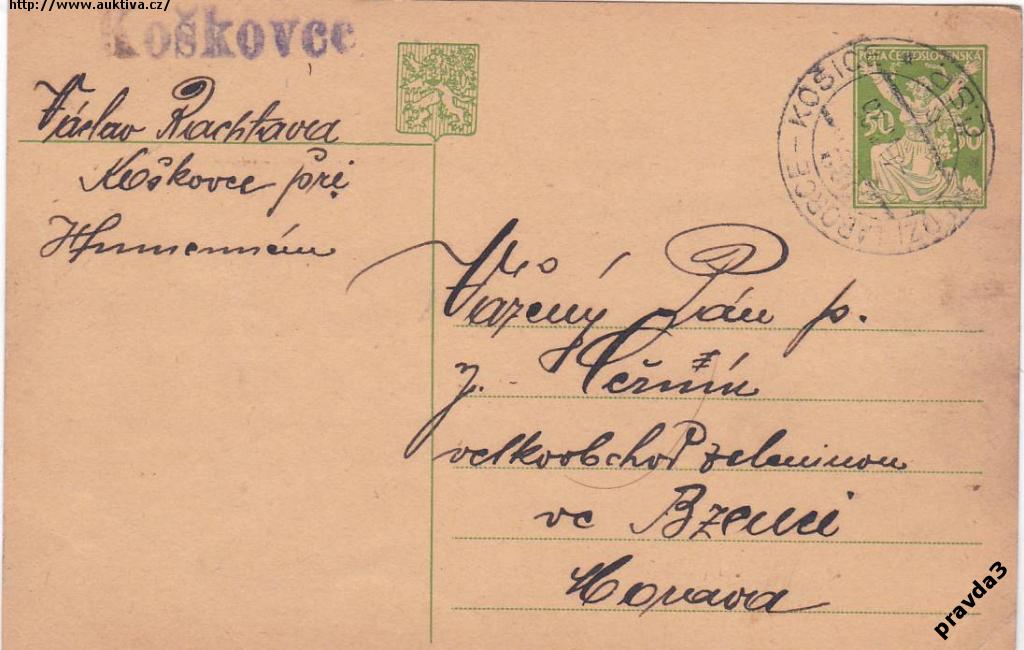 http://www.auktiva.cz/
Koškovce
Václav
Koškovce při
Humenném
POŠTA ČESKOSLOVENSKÁ
50 50
LABORCE – KOŠICE
Č.S.R.
Vážený Pán p.
J. Heřmín
velkoobchod zeleninou
ve Bzenci
Morava
pravda3